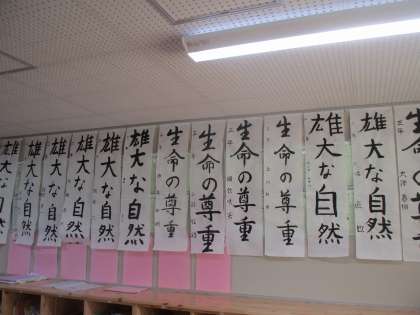 生命の
雄大な自然
雄大な自然
生命の尊重
生命の尊重
生命の尊重
生命の尊重
雄大な自然
雄大な自然
雄大な自然
雄大な自然
雄大な自然
雄大な自然